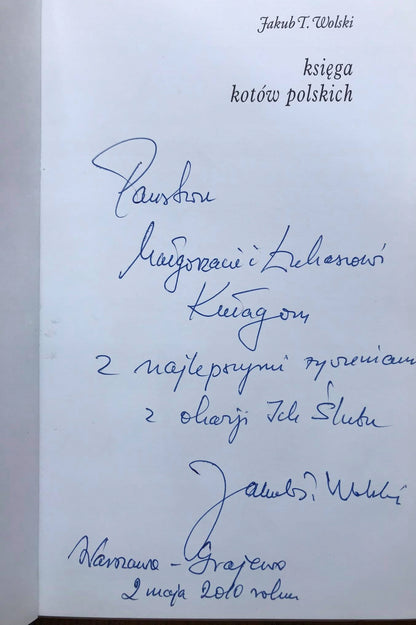 Jakub T. Wolski
księga
kotów polskich
Państwu
Małgorzacie i Łukaszowi
z najlepszymi życzeniami
z okazji Ich Ślubu
Jakub T. Wolski
Warszawa – Grajewo
2 maja 2010 roku